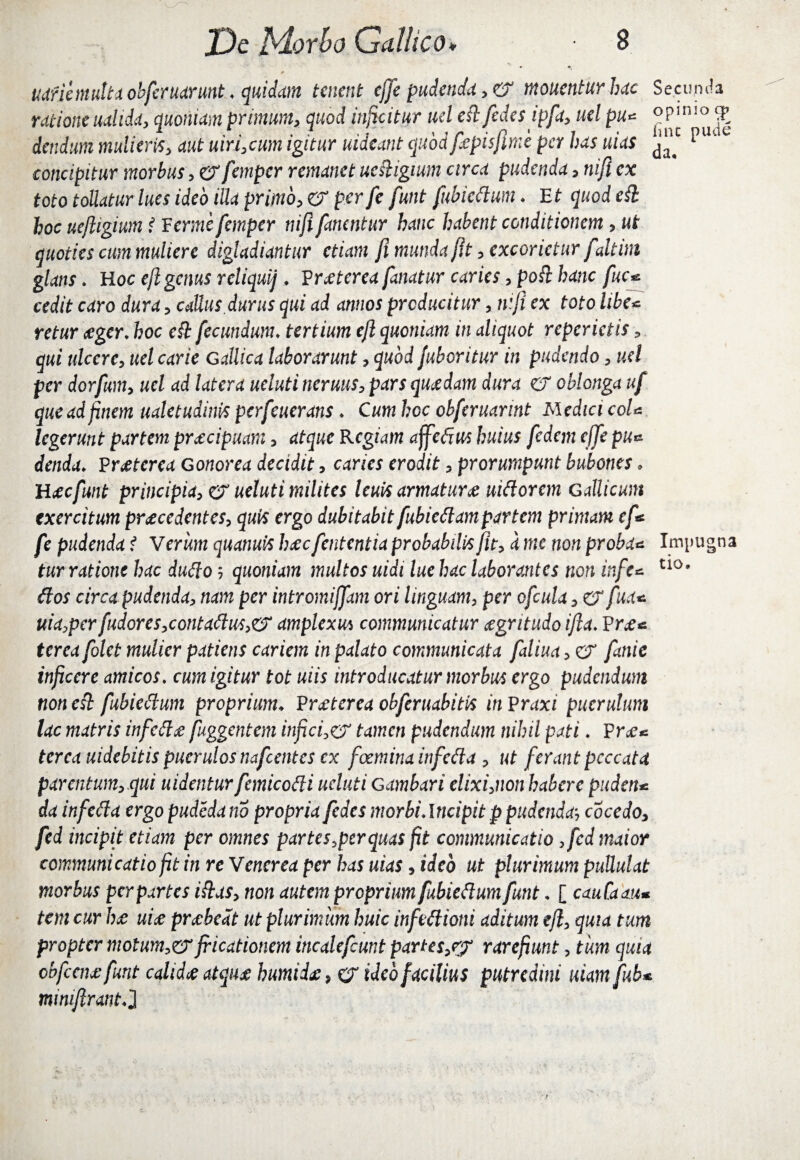 De Morbo Gallico. 8
uariè multa obseruarunt. quidam tenent esse pudenda, & mouentur hac
ratione ualida, quoniam primum, quod inficitur uel est sedes ipsa, uel pu=
dendum mulieris, aut uiri, cum igitur uideant quòd sæpissimè per has uias
concipitur morbus, & semper remanet uestigium circa pudenda, nisi ex
toto tollatur lues ideò illa primò, & per se sunt subiectum. Et quod est
hoc uestigium? Fermè semper nisi sanentur hanc habent conditionem, ut
quoties cum muliere digladiantur etiam si munda sit, excorietur saltim
glans. Hoc est genus reliquij. Præterea sanatur caries, post hanc suc=
cedit caro dura, callus durus qui ad annos producitur, nisi ex toto libe=
retur æger. hoc est secundum. tertium est quoniam in aliquot reperietis,
qui ulcere, uel carie Gallica laborarunt, quòd suboritur in pudendo, uel
per dorsum, uel ad latera ueluti neruus, pars quædam dura & oblonga us
que ad finem ualetudinis perseuerans. Cum hoc obseruarint Medici col=
legerunt partem præcipuam, atque Regiam affectus huius sedem esse pu=
denda. Præterea Gonorea decidit, caries erodit, prorumpunt bubones.
Hæc sunt principia, & ueluti milites leuis armaturæ uictorem Gallicum
exercitum præcedentes, quis ergo dubitabit subiectam partem primam es=
se pudenda? Verùm quanuis hæc sententia probabilis sit, à me non proba=
tur ratione hac ducto; quoniam multos uidi lue hac laborantes non infe=
ctos circa pudenda, nam per intromissam ori linguam, per oscula, & sua=
uia, per sudores, contactus, & amplexus communicatur ægritudo ista. Præ=
terea solet mulier patiens cariem in palato communicata saliua, & sanie
inficere amicos. cum igitur tot uiis introducatur morbus ergo pudendum
non est subiectum proprium. Præterea obseruabitis in Praxi puerulum
lac matris infectæ suggentem infici, & tamen pudendum nihil pati. Præ=
terea uidebitis puerulos nascentes ex fœmina infecta, ut ferant peccata
parentum, qui uidentur semicocti ueluti Gambari elixi, non habere puden=
da infecta ergo pudẽda nõ propria sedes morbi. Incipit ꝑ pudenda; cõcedo,
sed incipit etiam per omnes partes, per quas fit communicatio, sed maior
communicatio fit in re Venerea per has uias, ideò ut plurimum pullulat
morbus per partes istas, non autem proprium subiectum sunt. [ causa au=
tem cur hæ uiæ præbeãt ut plurimùm huic infectioni aditum est, quia tum
propter motum, & fricationem incalescunt partes, & rarefiunt, tùm quia
obscenæ sunt calidæ atquæ humidæ, & ideò facilius putredini uiam sub=
ministrant.]
Secunda
opinio ꝙ
sint pude
da.
Impugna
tio.